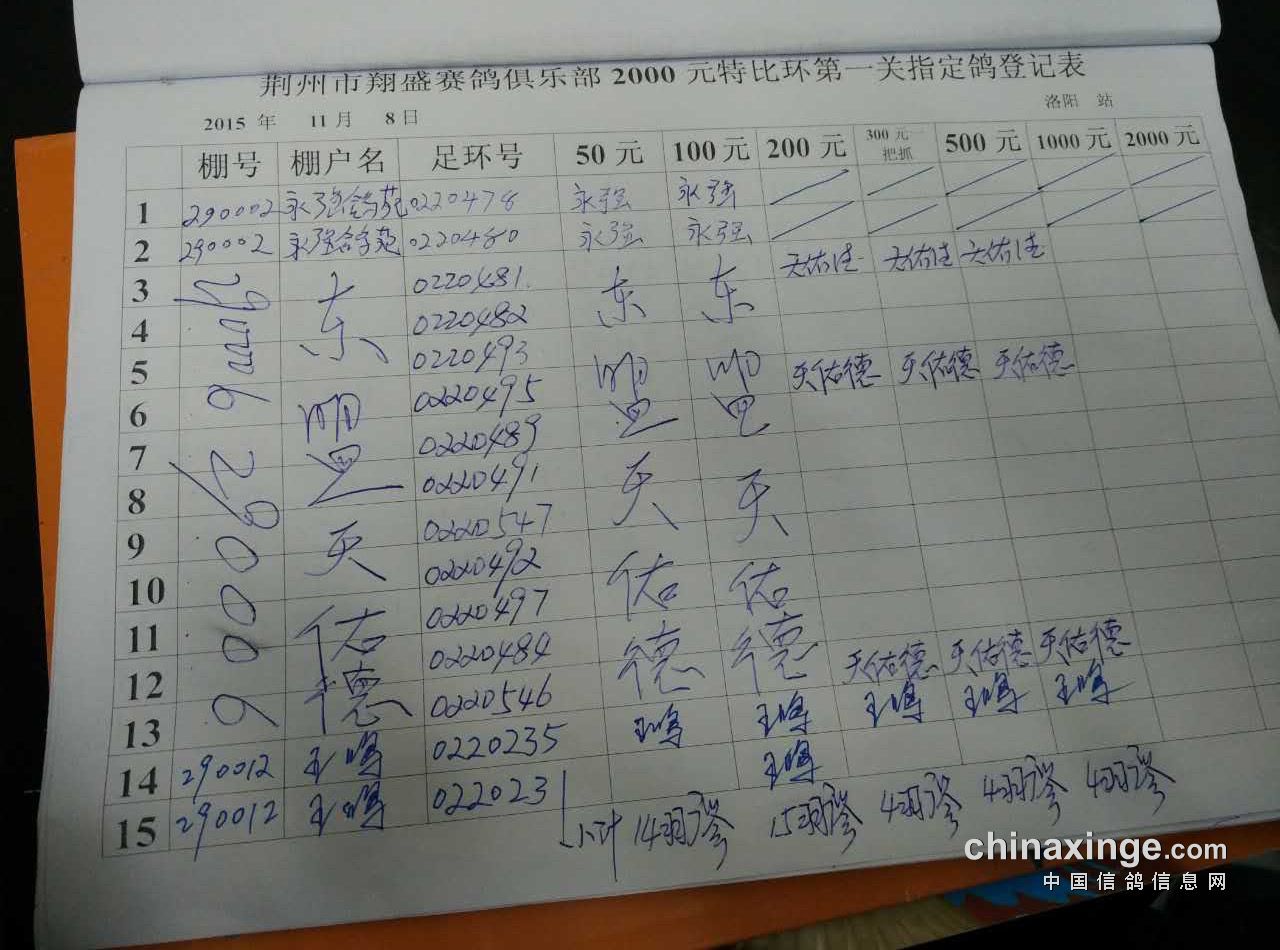 荆州市翔盛赛鸽俱乐部 2000 元特比环第一关指定鸽登记表
2015 年 11 月 8 日 洛阳 站
棚号 棚户名 足环号 50 元 100 元 200 元 300 元一把抓 500 元 1000 元 2000 元
1 290002 永强鸽苑 0220478 永强 永强
2 290002 永强鸽苑 0220480 永强 永强
3 290006 东盟天佑德 0220481 东盟天佑德 东盟天佑德 天佑德 天佑德 天佑德
4 0220482
5 0220493 天佑德 天佑德 天佑德
6 0220495
7 0220489
8 290006 0220491
9 0220547
10 0220492
11 0220497
12 0220484 天佑德 天佑德 天佑德
13 0220546
14 290012 0220235
15 290012 022023
小计 14羽 15羽 4羽 4羽 4羽
chinaxinge.com
中国信鸽信息网